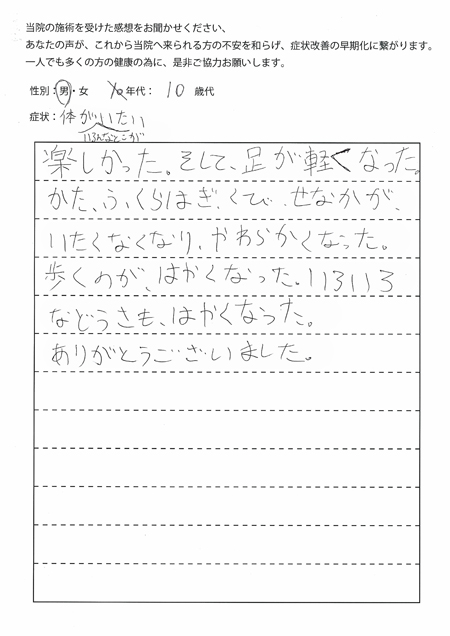 当院の施術を受けた感想をお聞かせください、
あなたの声が、これから当院へ来られる方の不安を和らげ、症状改善の早期化に繋がります。
一人でも多くの方の健康の為に、是非ご協力お願いします。
性別：男・女 年代： 10 歳代
症状：体がいたい
いろんなところが
楽しかった。そして、足が軽くなった。
かた、ふくらはぎ、くび、せなかが、
いたくなくなり、やわらかくなった。
歩くのが、はやくなった。いろいろ
などうさも、はやくなった。
ありがとうございました。